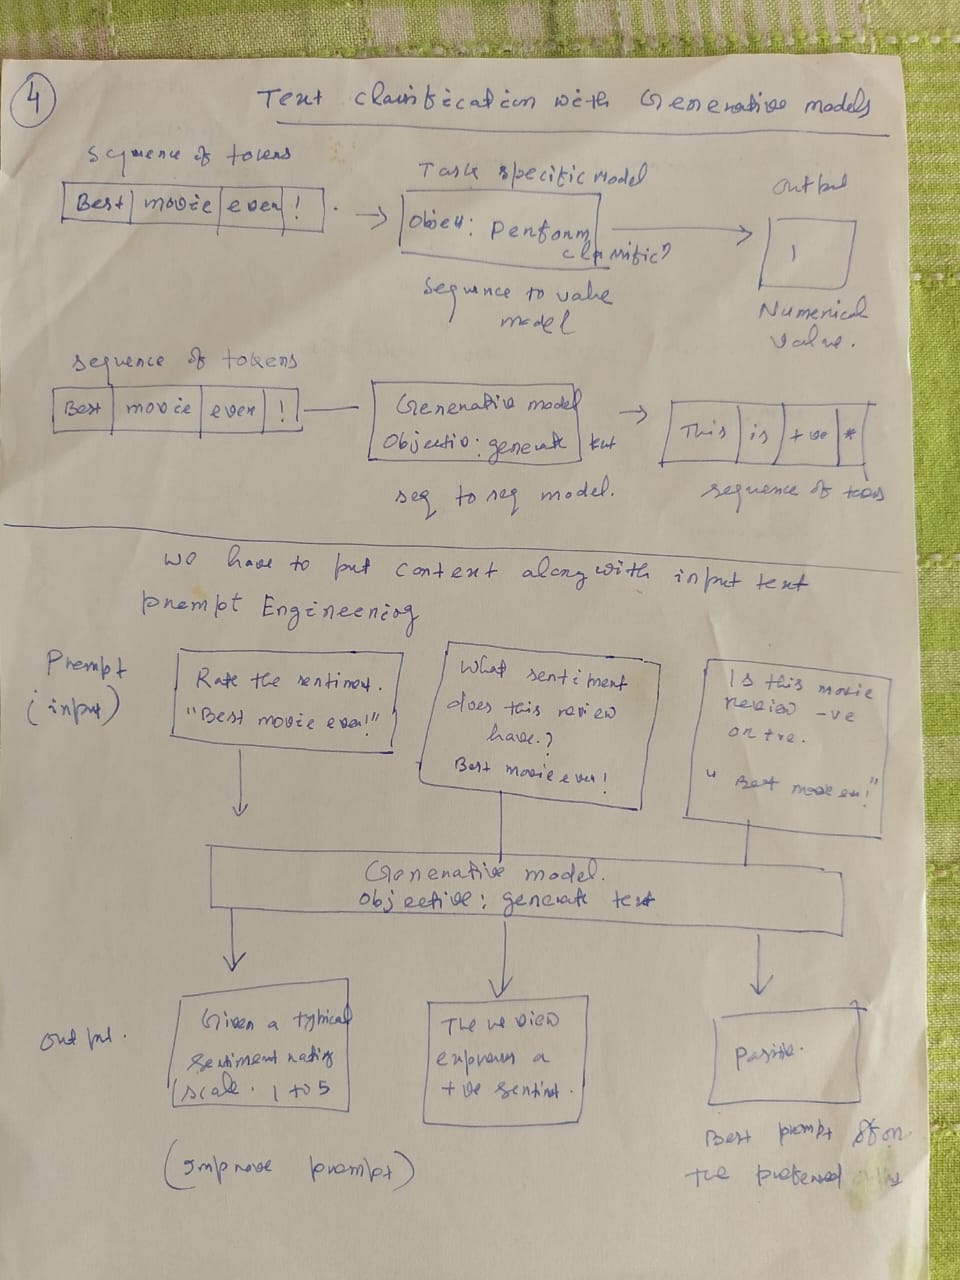 4
Text classification with Generative models
Sequence of tokens
Best movie ever !
Task specific Model
Object: Perform
classific?
Sequence to value
model
Output
1
Numerical
Value.
Sequence of tokens
Best movie ever !
Generative model
Objectiv: generate text
seq to seq model.
This is +ve *
Sequence of
we have to put context along with input text
prompt Engineering
Prompt
(input)
Rate the sentiment.
"Best movie ever!"
What sentiment
does this review
have.?
Best movie ever!
Is this movie
review -ve
or +ve.
"Best movie ever!"
Generative model.
Objective: generate text
Output.
Given a typical
sentiment rating
scale. 1 to 5
The review
express a
+ve sentiment.
Positive.
(Improve prompt)
Best prompt
the preferred